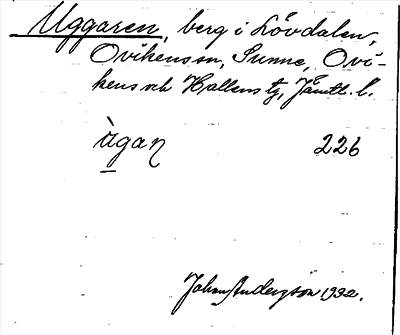 Uggaren, berg i Lövdalen,
Ovikens sn, Sunne, Ovi-
kens och Hallens tg, Jämtl. l.
ùgaɳ 226
Johan Anderzon 1932.